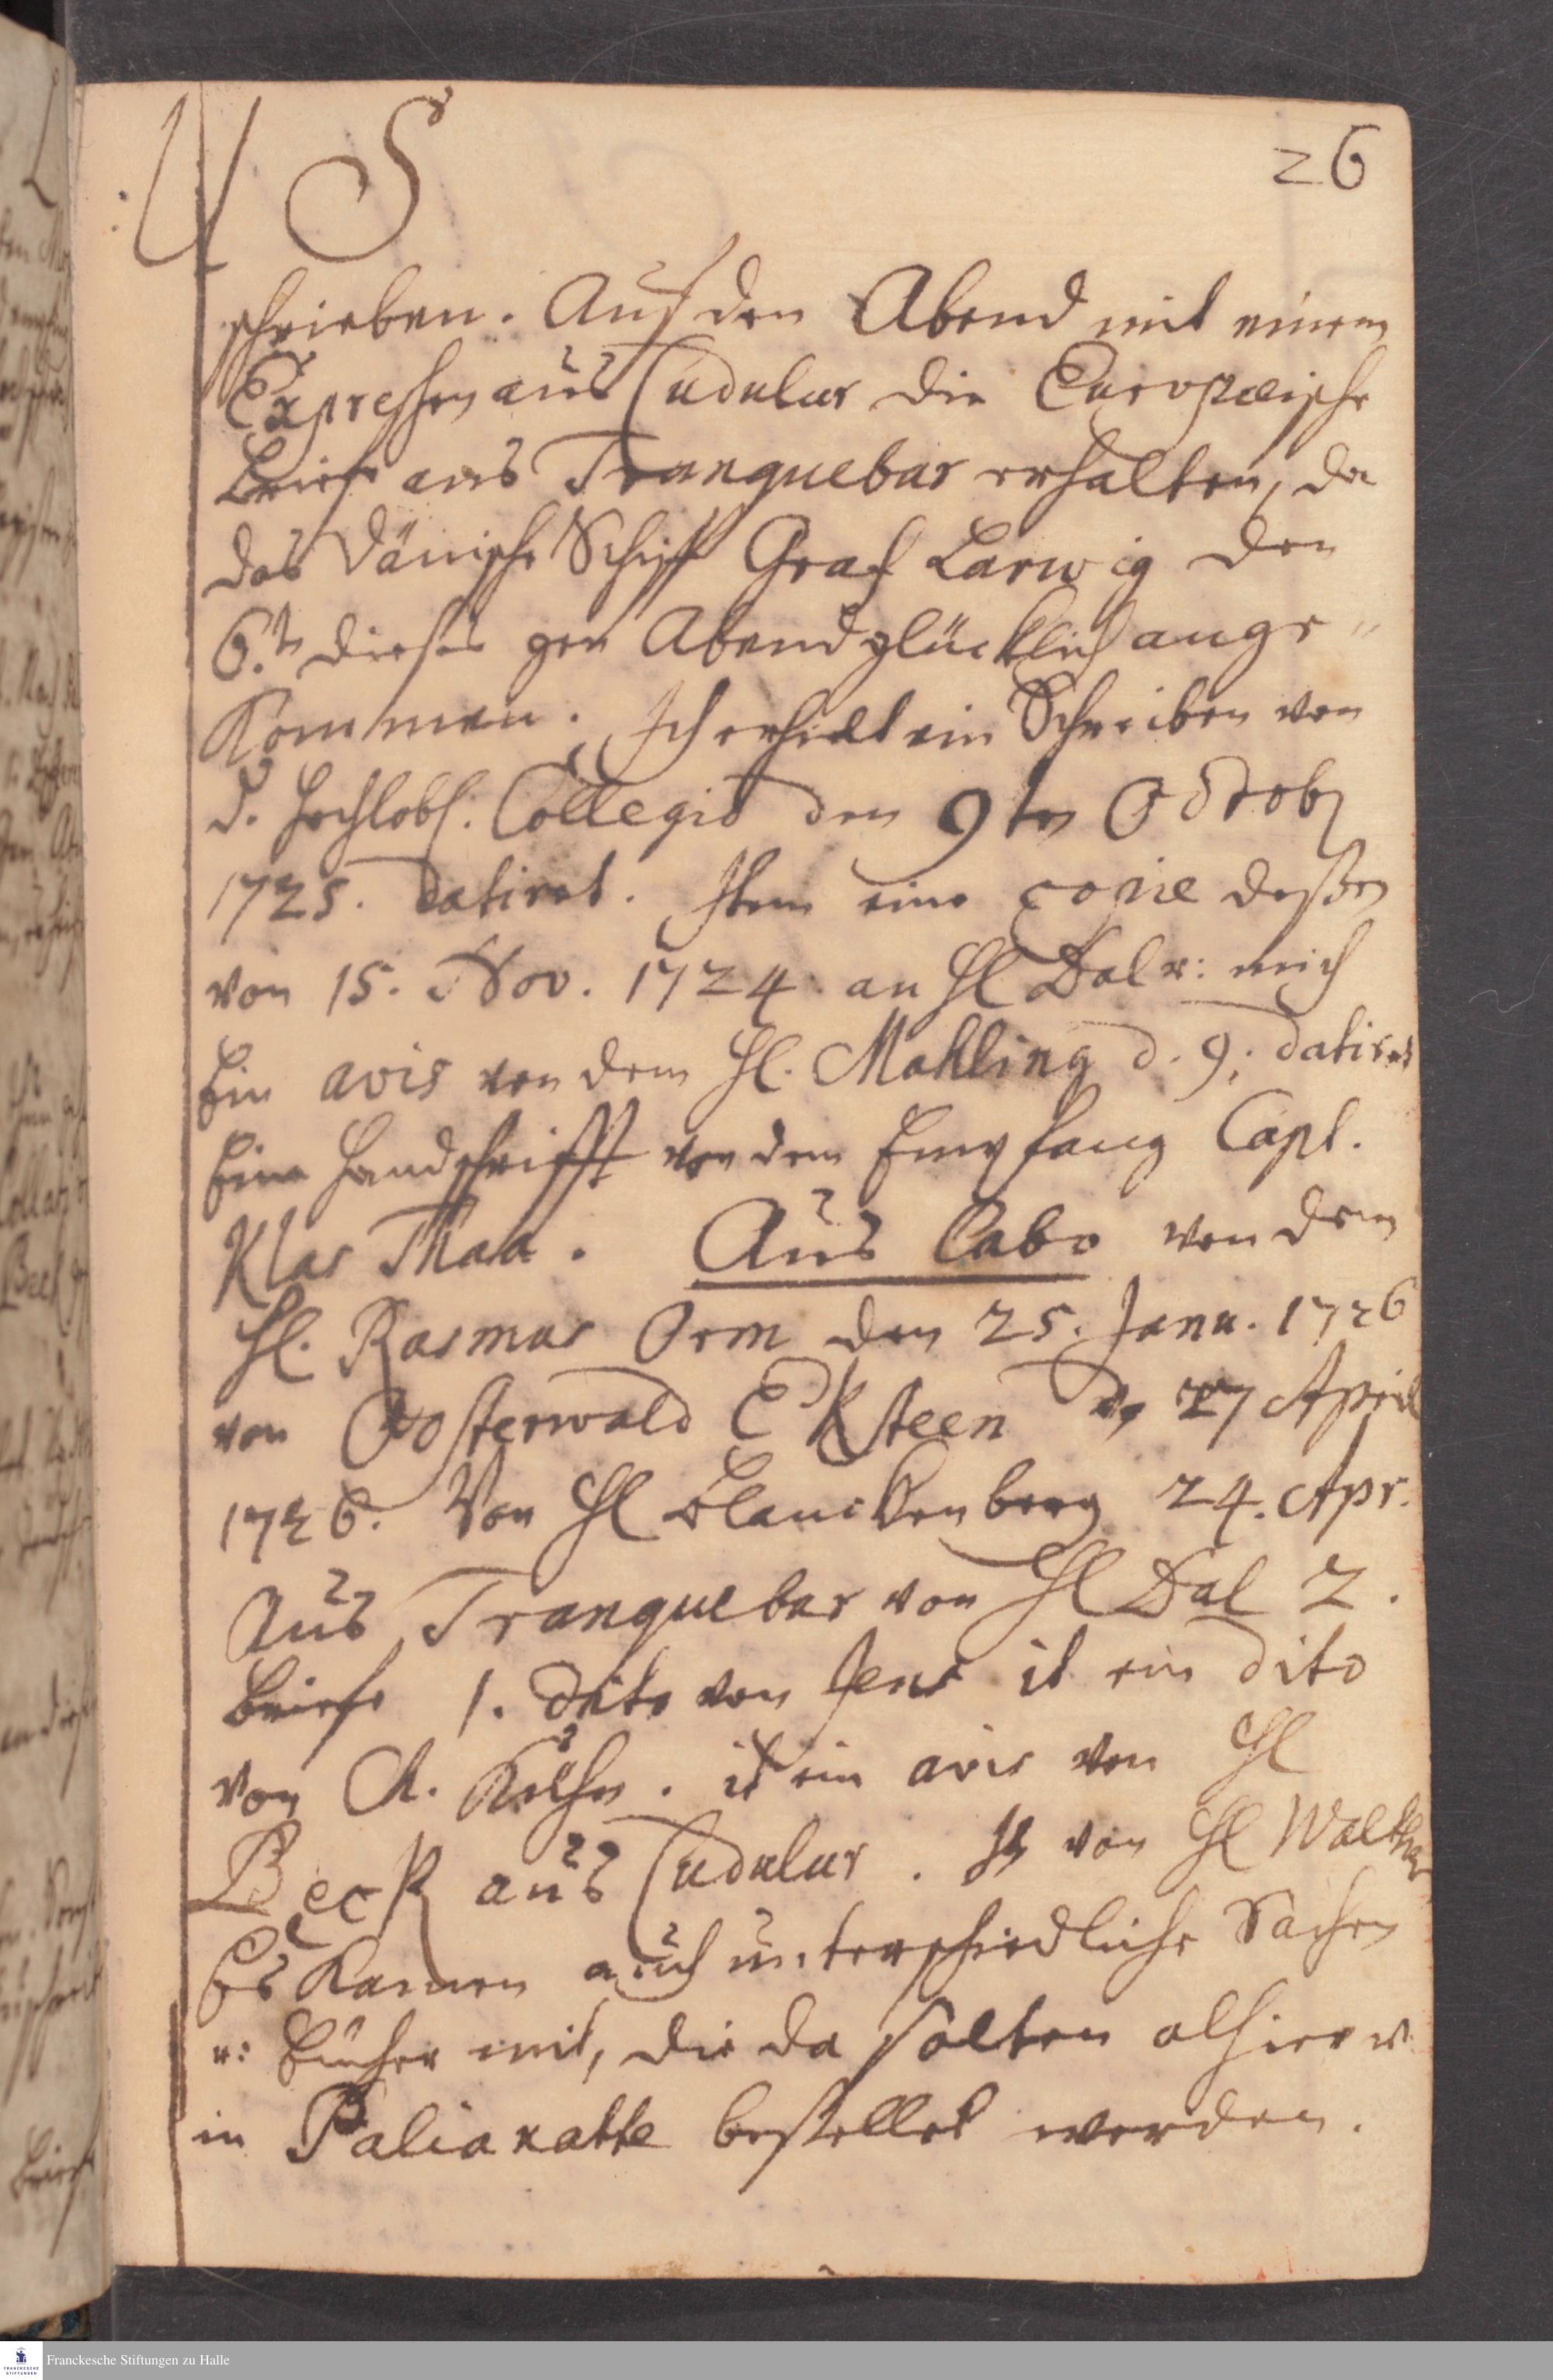 S
26
schrieben. Auf den Abend mit einem
Expressen aus Cudulur die Europæische
Briefe aus Tranquebar erhalten, da
das Dänische Schiff Graf Larwig den
6.t dieses gen Abend glücklich ange„
kommen. Ich erhielt ein Schreiben von
d. hochlobl. Collegio den 9ten Octob
1725. datiret. Item eine copie deßen
von 15. Nov. 1724. an H Dal u: mich
Ein avis von dem H. Mahling d. 9. datiret
Eine Handschrifft von dem Empfang Capt.
Klas Thaa. Aus Cabo von dem
H. Rasmus Orm den 25. Janu. 1726
von Oosterwald Eksteen d. 27 April
1726. Von H Blanckenberg 24. Apr.
Aus Tranquebar von H Dal 2.
Briefe 1. dito von Jens it ein dito
von A. Kühn. it ein avis von H
Beck aus Cudulur. It von H Walther
Es kamen auch unterschiedliche Sachen
u: Bücher mit, die da solten alhier u.
in Paliakatte bestellet werden.
Franckesche Stiftungen zu Halle